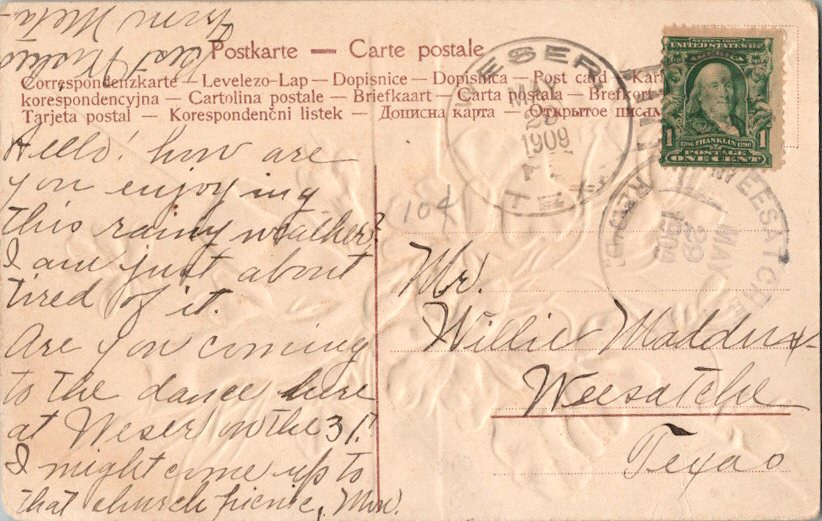 Postkarte — Carte postale
Correspondenzkarte — Levelezo-Lap — Dopisnice — Dopisnica — Post card — Kar
korespondencyjna — Cartolina postale — Briefkaart — Carta postala — Brefkort
Tarjeta postal — Korespondenčni listek — Дописна карта — Открытое письм
WESER
MAY
1909
TEX.
SERIES 1902
UNITED STATES OF
1706 FRANKLIN 1790
1 POSTAGE 1
ONE CENT
WEESATCHE
MAY
29
1909
REC'D.
10¢
Hello! how are
you enjoying
this rainy weather?
I am just about
tired of it.
Are you coming
to the dance here
at Weser on the 31?
I might come up to
that church picnic,
From Meta
Mr.
Willie Maddux
Weesatche
Texas